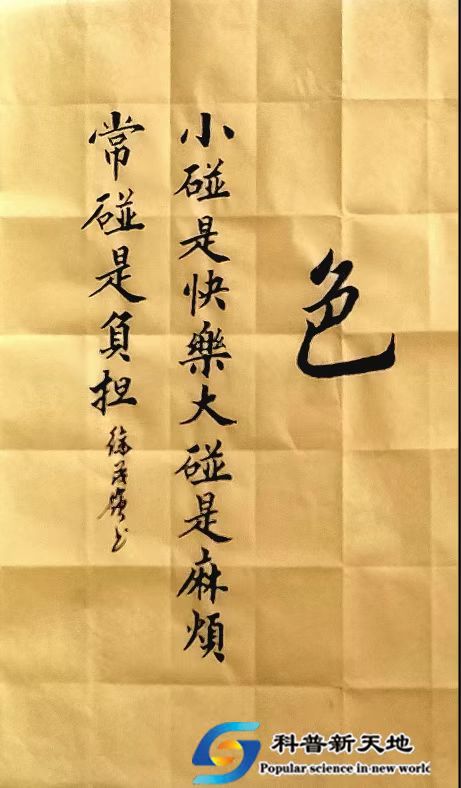 色
小碰是快樂大碰是麻煩
常碰是負担
科普新天地
Popular science in new world